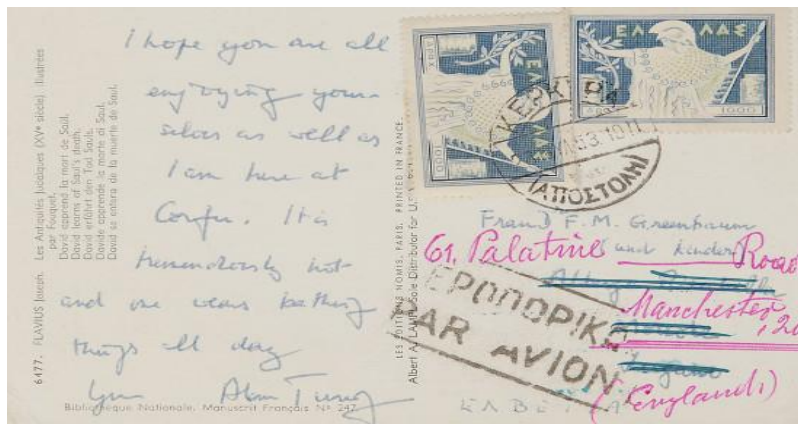 6177. FLAVIUS Joseph. Les Antiquités Judaïques (XVe siècle) illustrées
par Fouquet.
David apprend la mort de Saül.
David learns of Saul's death.
David erfährt den Tod Sauls.
Davide apprende la morte di Saul.
David se entera de la muerte de Saul.
I hope you are all
enjoying your-
selves as well as
I am here at
Corfu. It is
tremendously hot
and one wears bathing
things all day
Yours Alan Turing
Bibliothèque Nationale. Manuscrit Français No 247
LES EDITIONS NOMIS, PARIS. PRINTED IN FRANCE.
Albert A. Sole Distributor for U.
ΕΛΛΑΣ
ΔΡΑΧ.
1000
ΕΛΛΑΣ
ΔΡΑΧ.
1000
ΚΕΡΚΥΡΑ
53.10
ΑΠΟΣΤΟΛΗ
Frau F. M. Greenbaum
und Kinder
61, Palatine Road
Manchester, 20
(England)
ΑΕΡΟΠΟΡΙΚΩΣ
PAR AVION